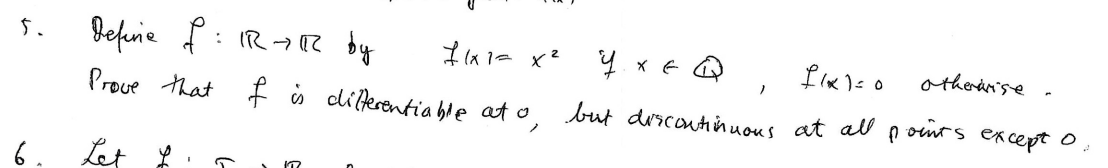 5. Define f : ℝ → ℝ by f(x) = x² if x ∈ ℚ , f(x) = 0 otherwise .
Prove that f is differentiable at 0, but discontinuous at all points except 0.
6. Let f :